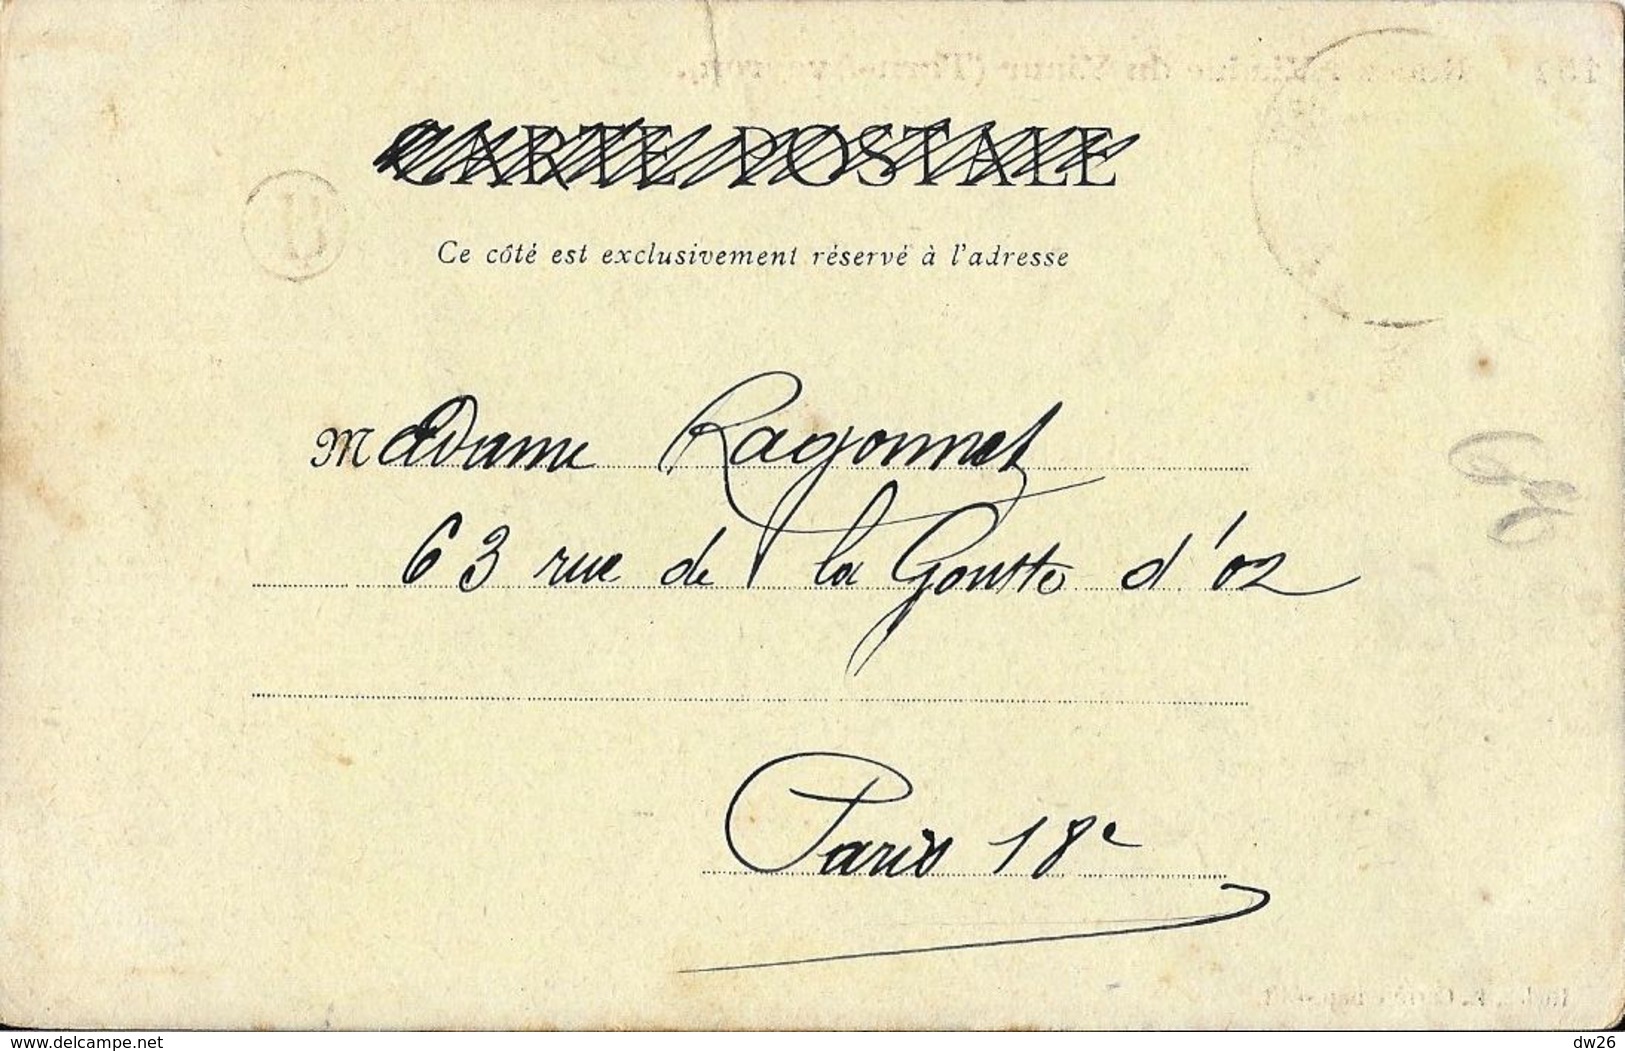 CARTE POSTALE
Ce côté est exclusivement réservé à l'adresse
Madame Ragonnet
63 rue de la Goutte d'oz
Paris 18e
www.delcampe.net
dw26